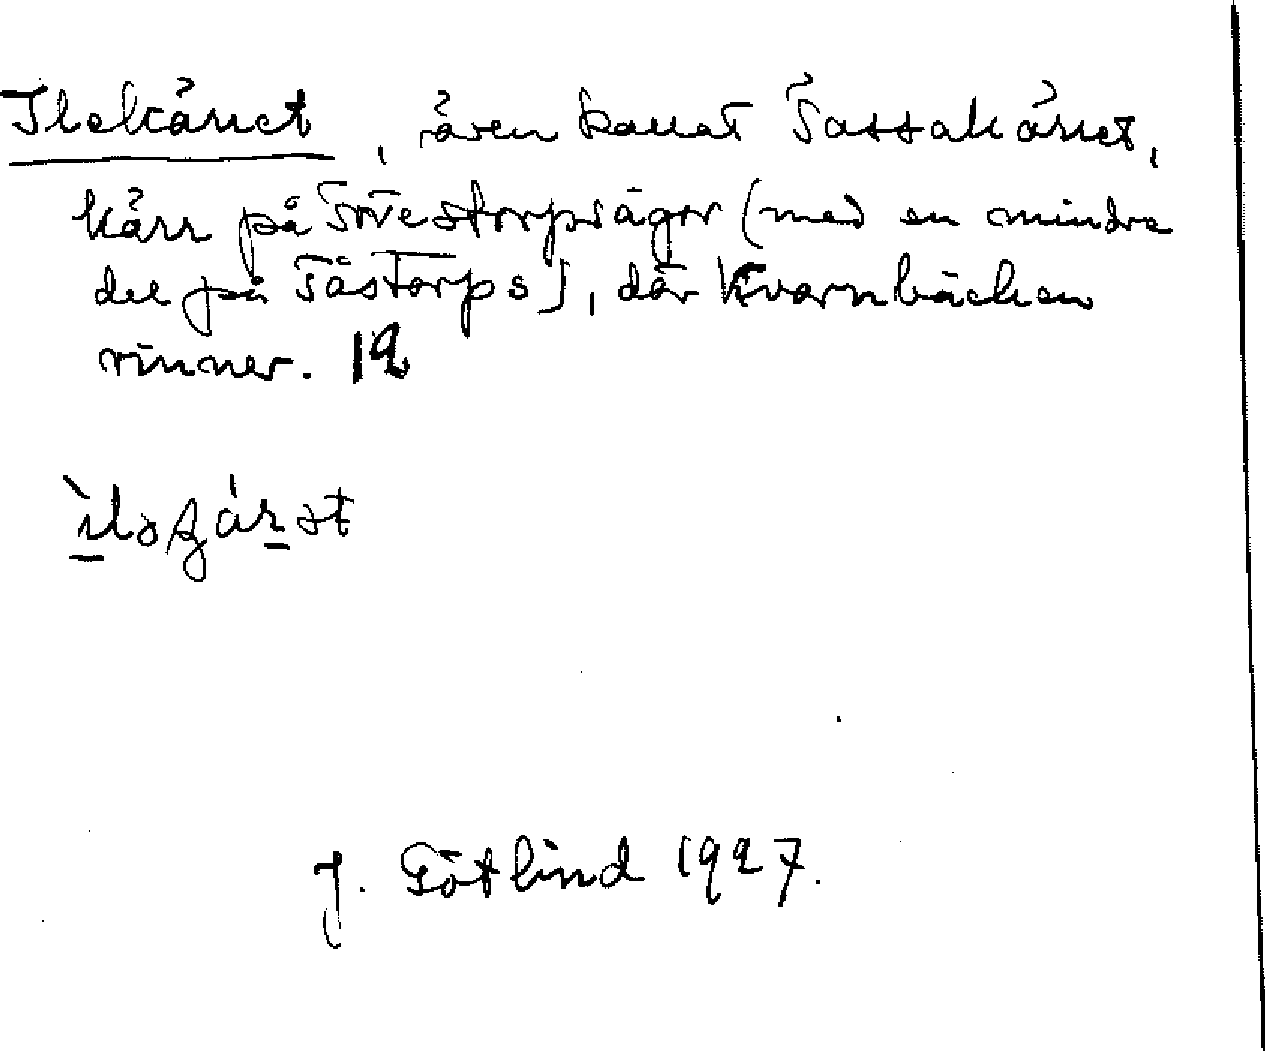 Ilekärret, även kallat Tassakärret,
kärr på Tovestorps ägor (med en mindre
del på Tåstorps), där Kvarnbäcken
rinner. 12
J. Götlind 1927.